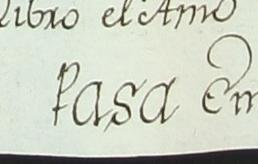 libro el Amo
Pasa Em